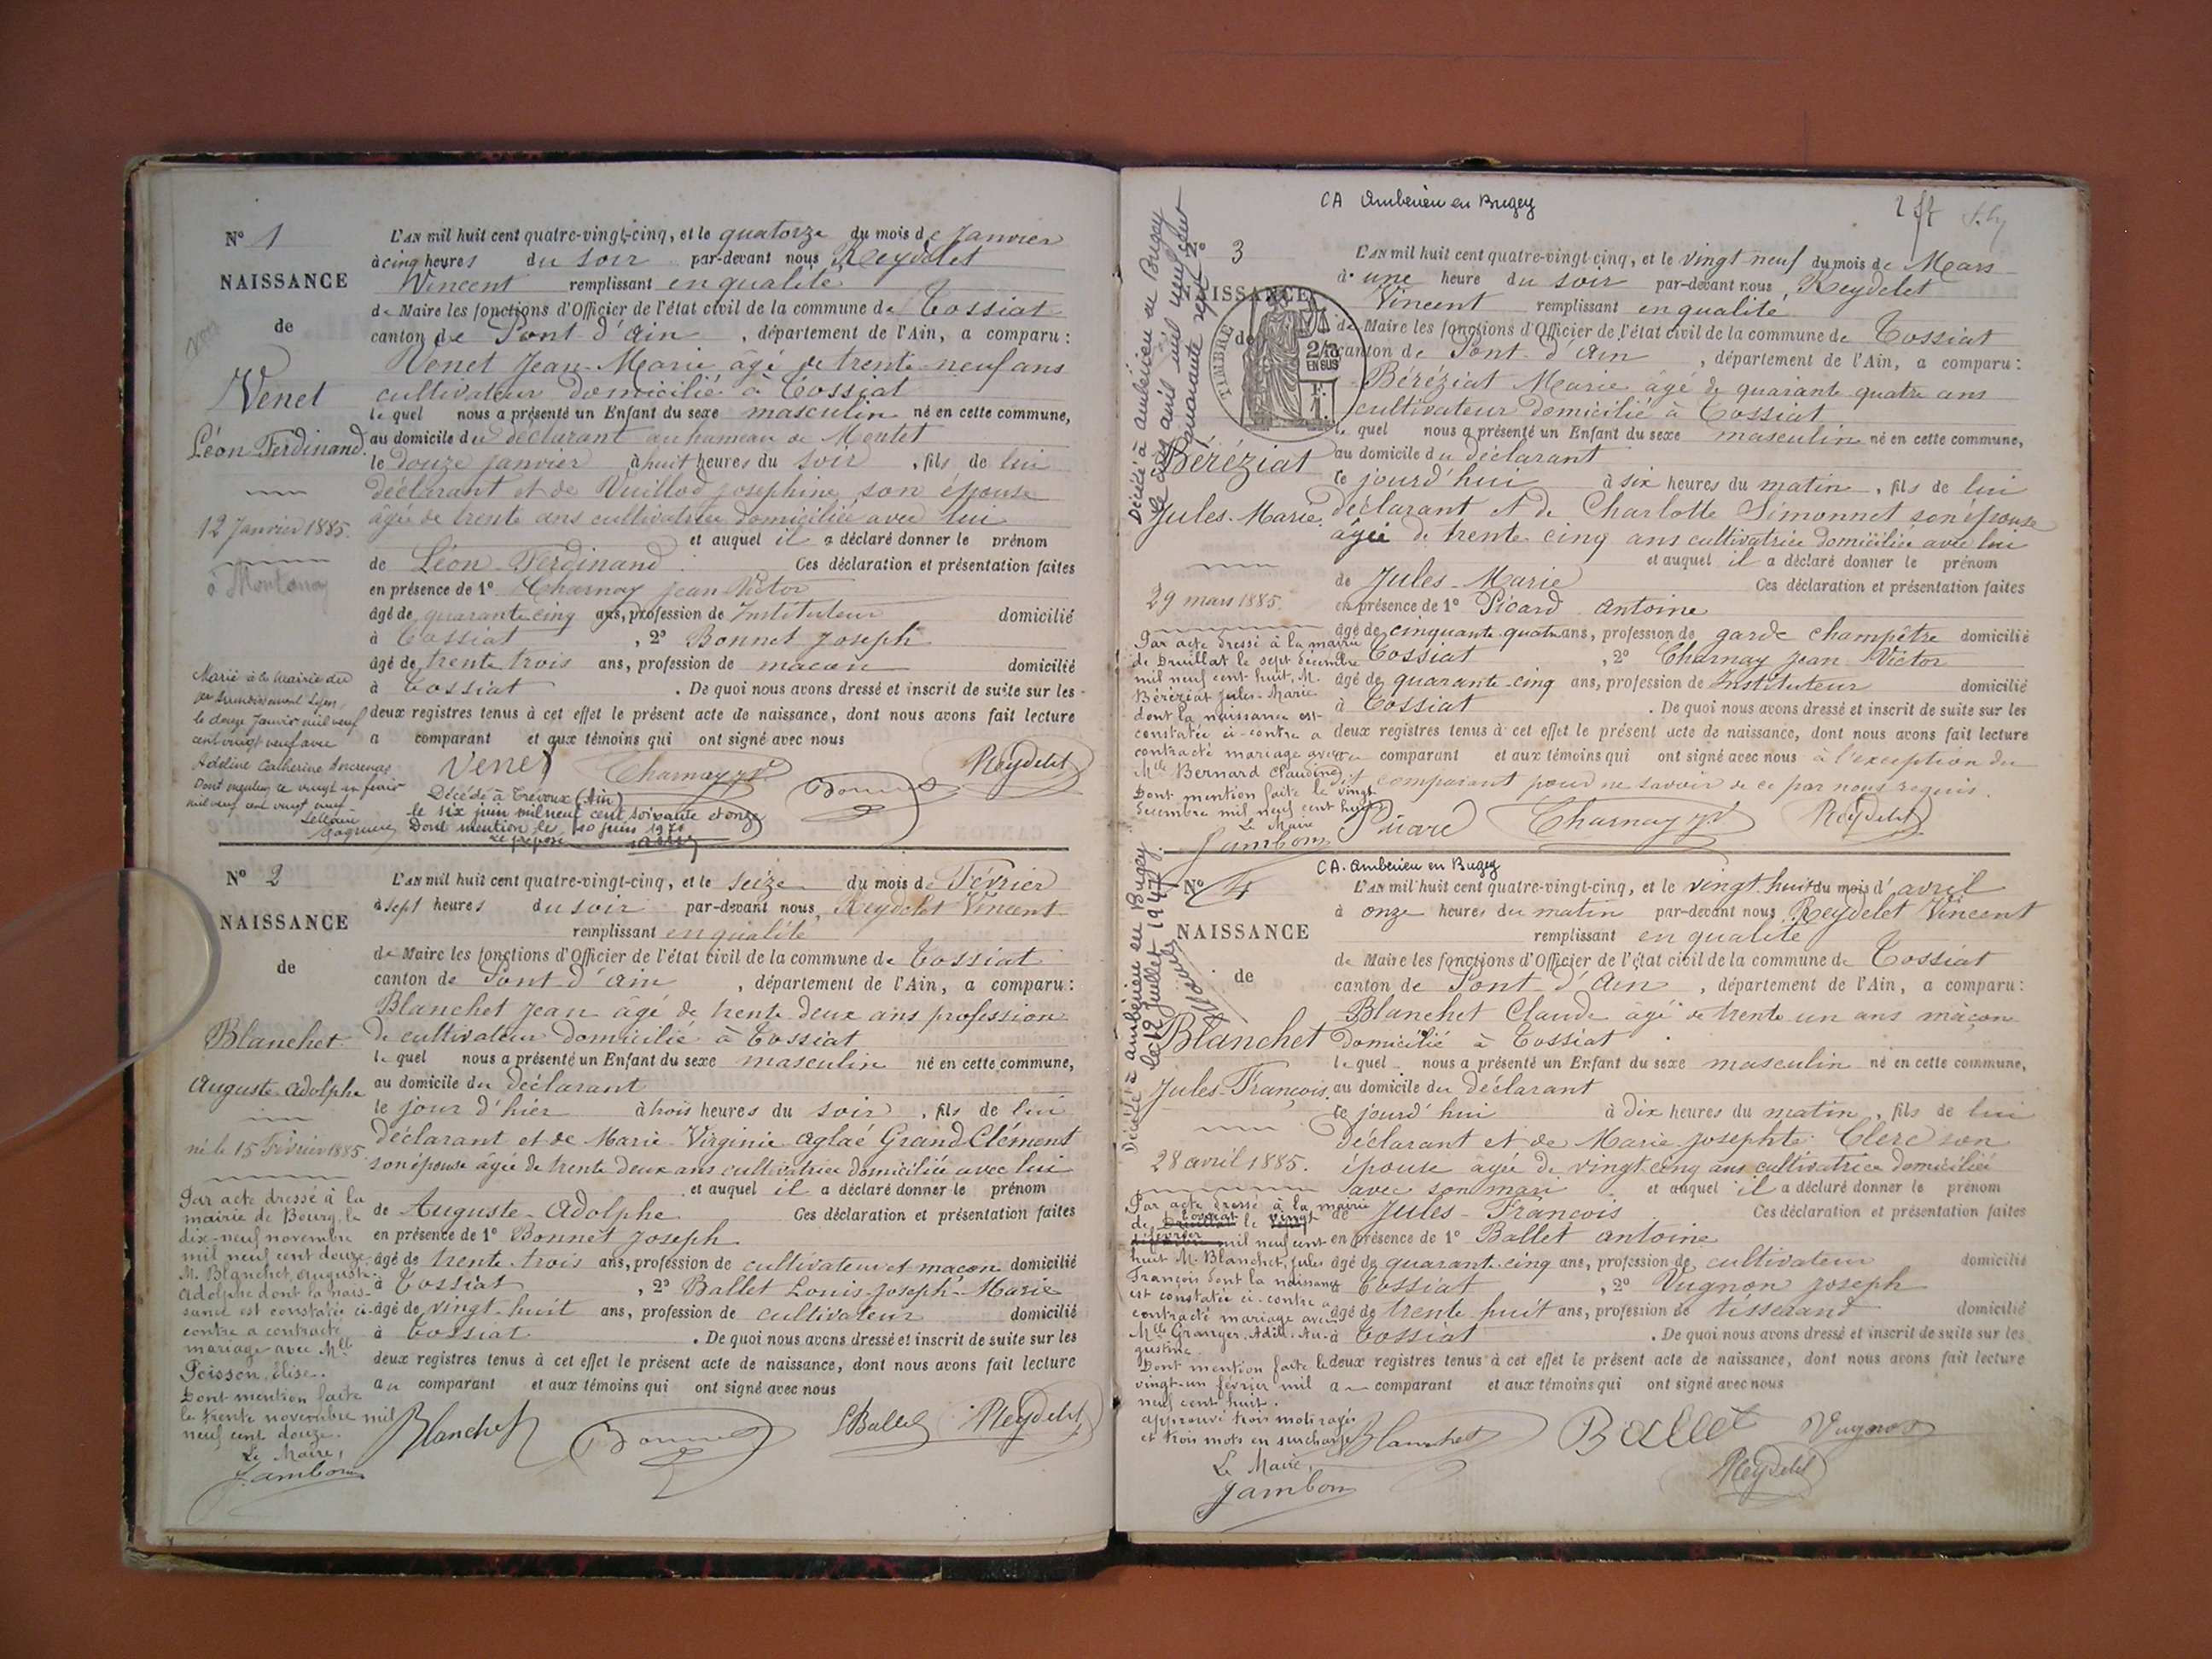 N° 1
NAISSANCE
de
Venet
Léon Ferdinand.
12 Janvier 1885.
à Montanay
Marié à la Mairie du
le douze Janvier mil neuf
cent vingt neuf avec
Adeline Catherine
Dont mention le vingt un février
mil neuf cent vingt neuf
L'AN mil huit cent quatre-vingt-cinq, et le quatorze du mois de Janvier
à cinq heures du soir par-devant nous Reydelet
Vincent remplissant en qualité
de Maire les fonctions d'Officier de l'état civil de la commune de Tossiat
canton de Pont d'Ain, département de l'Ain, a comparu :
Venet Jean-Marie âgé de trente neuf ans
cultivateur domicilié à Tossiat
lequel nous a présenté un Enfant du sexe masculin né en cette commune,
au domicile du déclarant au hameau de Montet
le douze janvier à huit heures du soir, fils de lui
déclarant et de Vuillod Josephine son épouse
âgée de trente ans cultivatrice domiciliée avec lui
et auquel il a déclaré donner le prénom
de Léon Ferdinand. Ces déclaration et présentation faites
en présence de 1° Charnay Jean Victor
âgé de quarante cinq ans, profession de Instituteur domicilié
à Tossiat, 2° Bonnet Joseph
âgé de trente trois ans, profession de maçon domicilié
à Tossiat. De quoi nous avons dressé et inscrit de suite sur les
deux registres tenus à cet effet le présent acte de naissance, dont nous avons fait lecture
a comparant et aux témoins qui ont signé avec nous
Venet Charnay Bonnet Reydelet
Décédé à Trévoux (Ain)
le six juin mil neuf cent soixante et onze
Dont mention le 10 juin 1971
Le préposé
N° 2
NAISSANCE
de
Blanchet
Auguste Adolphe
né le 15 Février 1885.
Par acte dressé à la
mairie de Bourg, le
dix-neuf novembre
mil neuf cent douze,
M. Blanchet, Auguste-
Adolphe dont la nais-
sance est constatée ci-
contre a contracté
mariage avec Mlle
Poisson, Élise.
Dont mention faite
le trente novembre mil
neuf cent douze.
Le Maire,
Jambon
L'AN mil huit cent quatre-vingt-cinq, et le seize du mois de Février
à sept heures du soir par-devant nous Reydelet Vincent
remplissant en qualité
de Maire les fonctions d'Officier de l'état civil de la commune de Tossiat
canton de Pont d'Ain, département de l'Ain, a comparu :
Blanchet Jean âgé de trente deux ans profession
de cultivateur domicilié à Tossiat
lequel nous a présenté un Enfant du sexe masculin né en cette commune,
au domicile du déclarant
le jour d'hier à trois heures du soir, fils de lui
déclarant et de Marie Virginie Aglaé Grand Clément
son épouse âgée de trente deux ans cultivatrice domiciliée avec lui
et auquel il a déclaré donner le prénom
de Auguste-Adolphe. Ces déclaration et présentation faites
en présence de 1° Bonnet Joseph
âgé de trente trois ans, profession de cultivateur et maçon domicilié
à Tossiat, 2° Ballet Louis-Joseph-Marie
âgé de vingt-huit ans, profession de cultivateur domicilié
à Tossiat. De quoi nous avons dressé et inscrit de suite sur les
deux registres tenus à cet effet le présent acte de naissance, dont nous avons fait lecture
au comparant et aux témoins qui ont signé avec nous
Blanchet Bonnet LBallet Reydelet
CA Ambérieu en Bugey
N° 3
NAISSANCE
de
TIMBRE
2/10
EN SUS
Béréziat
Jules-Marie.
29 mars 1885.
Décédé à Ambérieu en Bugey
Par acte dressé à la mairie
de Druillat le sept décembre
mil neuf cent huit, M.
Béréziat Jules-Marie
dont la naissance est
constatée ci-contre a
contracté mariage avec
Mlle Bernard Claudine.
Dont mention faite le vingt
décembre mil neuf cent huit
Le Maire
Jambon
L'AN mil huit cent quatre-vingt-cinq, et le vingt neuf du mois de Mars
à une heure du soir par-devant nous Reydelet
Vincent remplissant en qualité
de Maire les fonctions d'Officier de l'état civil de la commune de Tossiat
canton de Pont-d'Ain, département de l'Ain, a comparu :
Béréziat Marie âgé de quarante quatre ans
cultivateur domicilié à Tossiat
lequel nous a présenté un Enfant du sexe masculin né en cette commune,
au domicile du déclarant
ce jourd'hui à six heures du matin, fils de lui
déclarant et de Charlotte Simonnet son épouse
âgée de trente cinq ans cultivatrice domiciliée avec lui
et auquel il a déclaré donner le prénom
de Jules-Marie Ces déclaration et présentation faites
en présence de 1° Picard Antoine
âgé de cinquante quatre ans, profession de garde champêtre domicilié
à Tossiat, 2° Charnay Jean Victor
âgé de quarante-cinq ans, profession de Instituteur domicilié
à Tossiat. De quoi nous avons dressé et inscrit de suite sur les
deux registres tenus à cet effet le présent acte de naissance, dont nous avons fait lecture
au comparant et aux témoins qui ont signé avec nous à l'exception du
dit comparant pour ne savoir de ce par nous requis.
Picard Charnay Reydelet
CA. Ambérieu en Bugey
N° 4
NAISSANCE
de
Blanchet
Jules-François.
28 avril 1885.
Décédé à Ambérieu en Bugey
le 12 juillet 1947
Par acte dressé à la mairie
de Tossiat le vingt
février mil neuf cent
huit M. Blanchet, Jules
François dont la naissance
est constatée ci-contre a
contracté mariage avec
Mlle Granger, Adèle Au-
gustine.
Dont mention faite le
vingt-un février mil
neuf cent huit.
approuvé trois mots rayés
et trois mots en surcharge
Le Maire,
Jambon
L'AN mil huit cent quatre-vingt-cinq, et le vingt huit du mois d'avril
à onze heures du matin par-devant nous Reydelet Vincent
remplissant en qualité
de Maire les fonctions d'Officier de l'état civil de la commune de Tossiat
canton de Pont-d'Ain, département de l'Ain, a comparu :
Blanchet Claude âgé de trente un ans maçon
domicilié à Tossiat
lequel nous a présenté un Enfant du sexe masculin né en cette commune,
au domicile du déclarant
ce jourd'hui à dix heures du matin, fils de lui
déclarant et de Marie Josephte Clerc son
épouse âgée de vingt cinq ans cultivatrice domiciliée
avec son mari et auquel il a déclaré donner le prénom
de Jules-François Ces déclaration et présentation faites
en présence de 1° Ballet Antoine
âgé de quarante-cinq ans, profession de cultivateur domicilié
à Tossiat, 2° Vugnon Joseph
âgé de trente huit ans, profession de tisserand domicilié
à Tossiat. De quoi nous avons dressé et inscrit de suite sur les
deux registres tenus à cet effet le présent acte de naissance, dont nous avons fait lecture
au comparant et aux témoins qui ont signé avec nous
Blanchet Ballet Vugnon
Reydelet